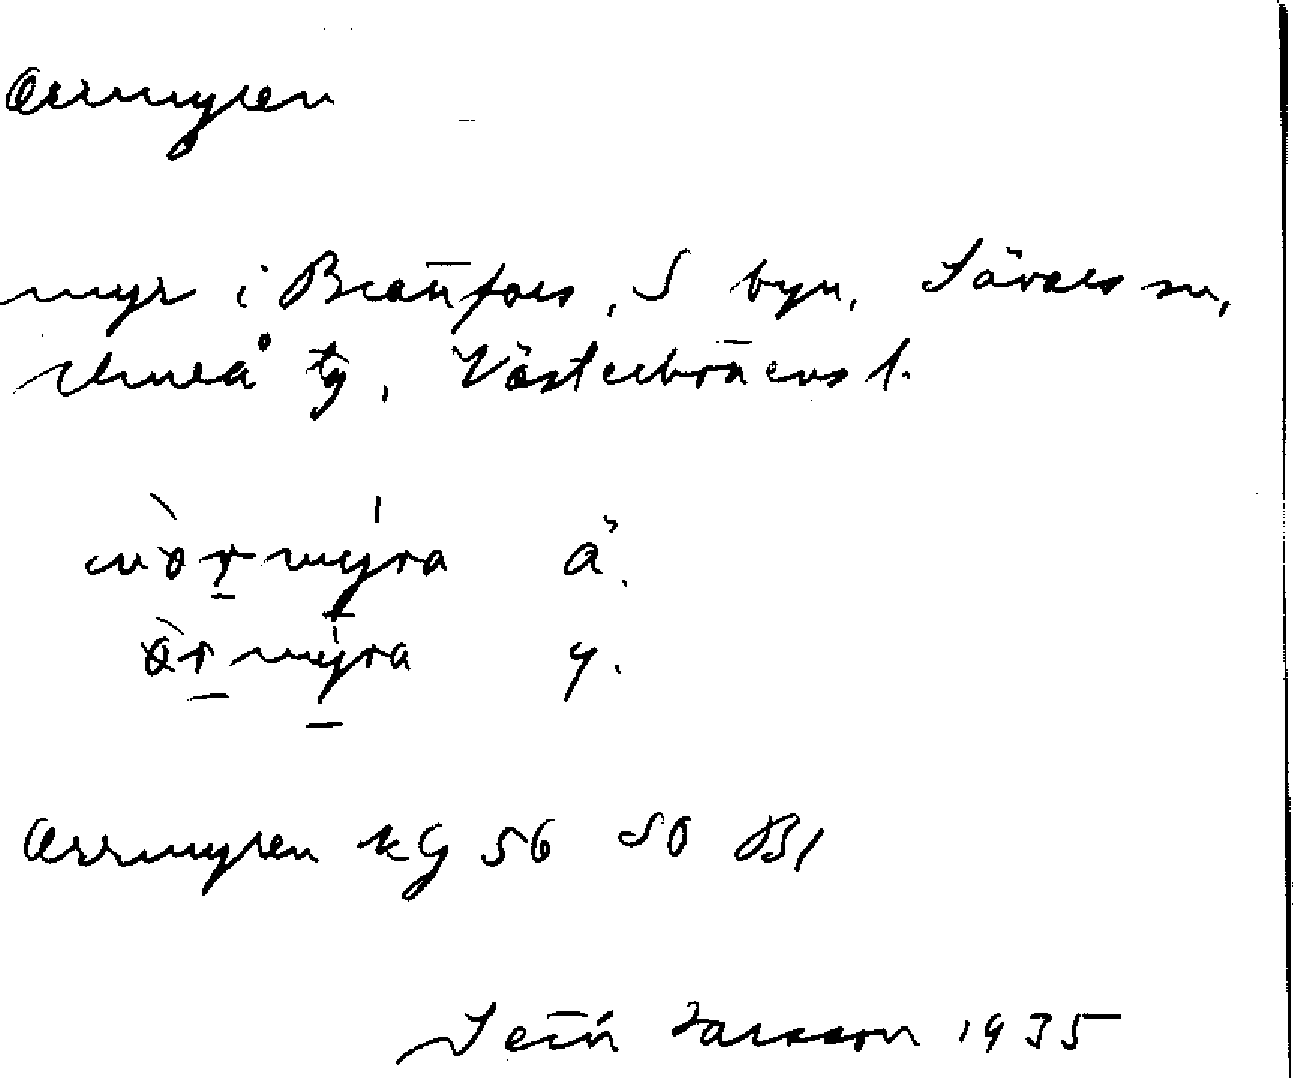 Orrmyren
myr i Brännfors, S byn, Sävars sn,
Umeå tg, Västerbottens l.
myra ä.
myra y.
Orrmyren kG 56 SO B1
Larsson 1935